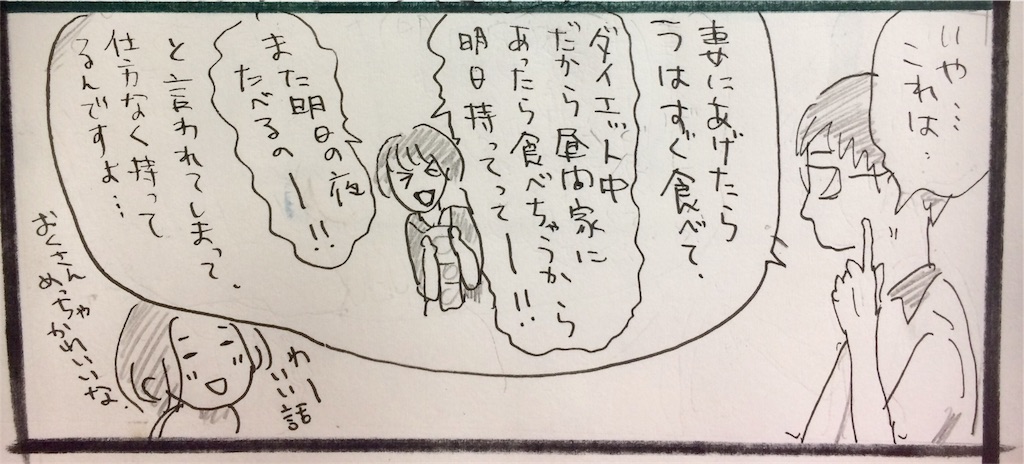 いや…
これは..
妻にあげたら
うはすぐ食べて、
ダイエット中
だから昼間家に
あったら食べちゃうから
明日持ってってー!!
また明日の夜
たべるのー!!
と言われてしまって、
仕方なく持って
るんですよ…
わー
いい話
おくさん
めっちゃかわいいな、